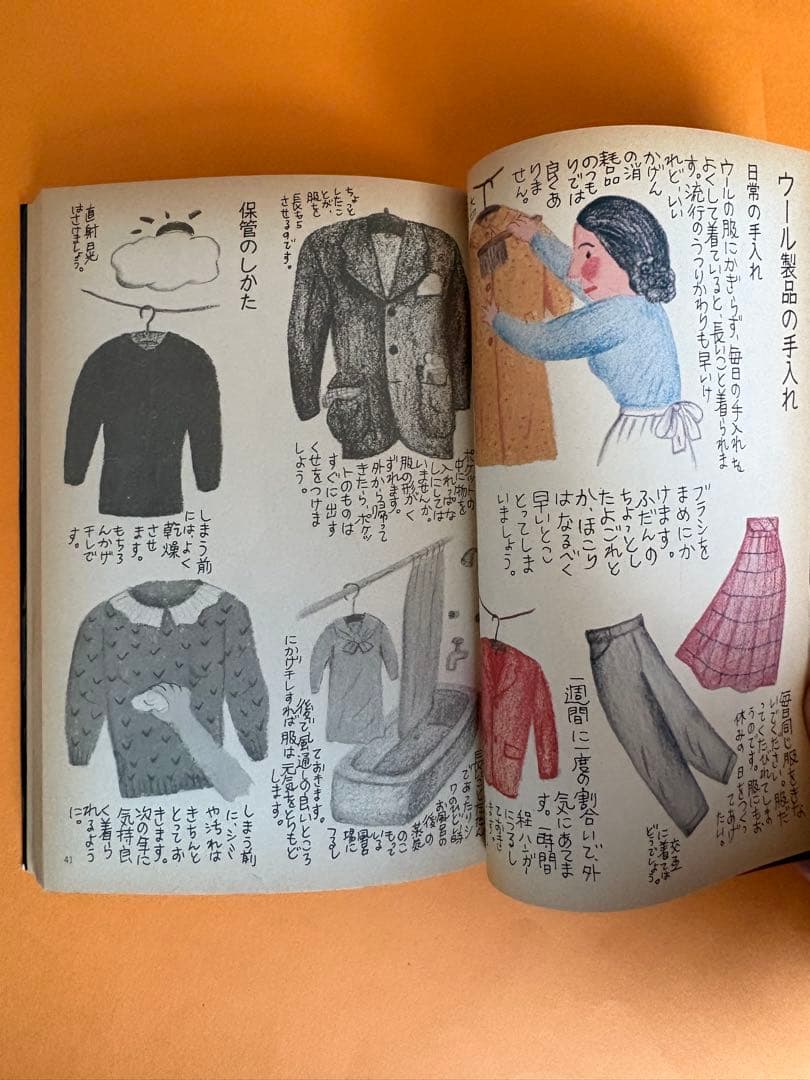 ウール製品の手入れ
日常の手入れ
ウールの服にかぎらず、毎日の手入れを
よくして着ていると、長いこと着られま
す。流行のうつりかわりも早いけ
れど、いい
かげん
の消
耗品
のつも
りでは
良くあ
りま
せん。
ブラシを
まめにか
けます。
ふだんの
ちょっとし
たよごれと
か、ほこり
はなるべく
早いとこ
とってしま
いましょう。
毎日同じ服をきな
いでください。服だ
ってくたびれてしま
うのです。服にもお
休みの日をつくっ
てあげ
たい。
交互
に着ては
どうでしょう。
一週間に一度の割合いで、外
気にあてま
す。一時間
程ハンガー
につるし
ておきま
ポケットの
中に物を
入れっぱな
しにしては
いませんか。
服の形がく
ずれます。
外から帰って
きたら、ポケッ
トのものは
すぐに出す
くせをつけま
しょう。
ちょっと
したこ
とが、
服を
長もち
させるのです。
お風呂の
後の
蒸気
のこ
もって
いる
風呂
場に
つるし
ておきます。
後で風通しの良いところ
にかげ干しすれば服は元気をとりもど
します。
保管のしかた
直射日光
はさけましょう。
しまう前
には、よく
乾燥
させ
ます。
もちろ
んかげ
干しで
す。
しまう前
に、シミ
や汚れは
きちんと
とってお
きます。
次の年に
気持良
く着ら
れるよう
に。
41